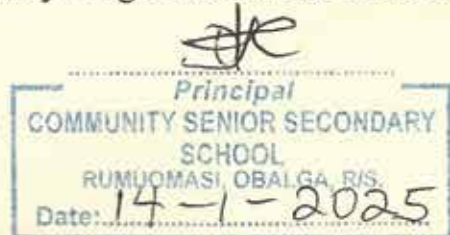 Principal
COMMUNITY SENIOR SECONDARY
SCHOOL
RUMUOMASI, OBALGA, R/S.
Date: 14-1-2025